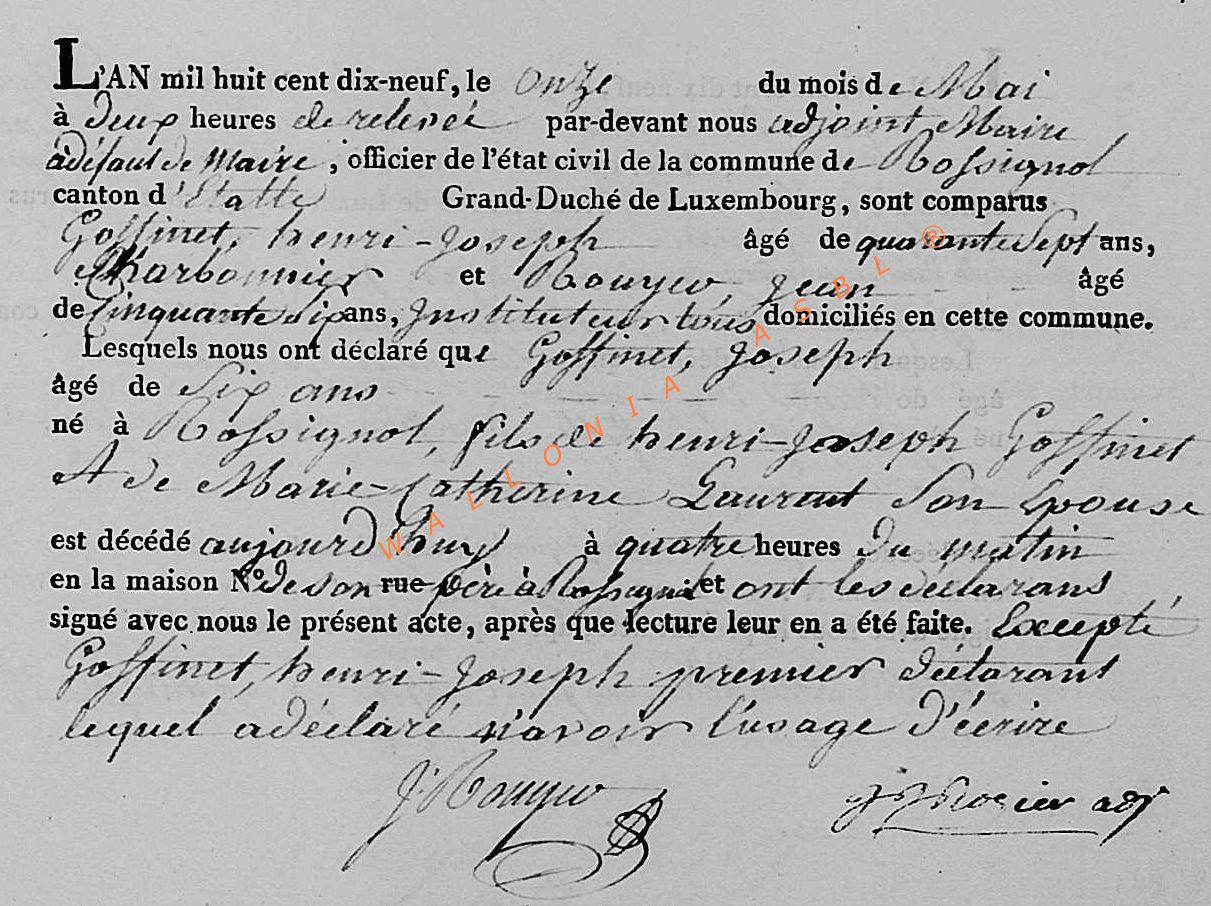 L'AN mil huit cent dix-neuf, le onze du mois de Mai
à deux heures de relevée par-devant nous adjoint Maire
à défaut de Maire, officier de l'état civil de la commune de Rossignol
canton d'Etalle Grand-Duché de Luxembourg, sont comparus
Goffinet, henri-Joseph âgé de quarante Sept ans,
Charbonnier et Rouyer, Jean âgé
de Cinquante Six ans, Instituteur tous domiciliés en cette commune.
Lesquels nous ont déclaré que Goffinet, Joseph
âgé de Six ans
né à Rossignol, fils de henri-Joseph Goffinet
et de Marie-Catherine Laurent Son Epouse
est décédé aujourd'huy à quatre heures du matin
en la maison N° de son rue père à Rossignol et ont les déclarans
signé avec nous le présent acte, après que lecture leur en a été faite. Excepté
Goffinet, henri-Joseph premier déclarant
lequel a déclaré n'avoir l'usage d'écrire
J. Rouyer J J Rozier adj
WALLONIA ASBL ®